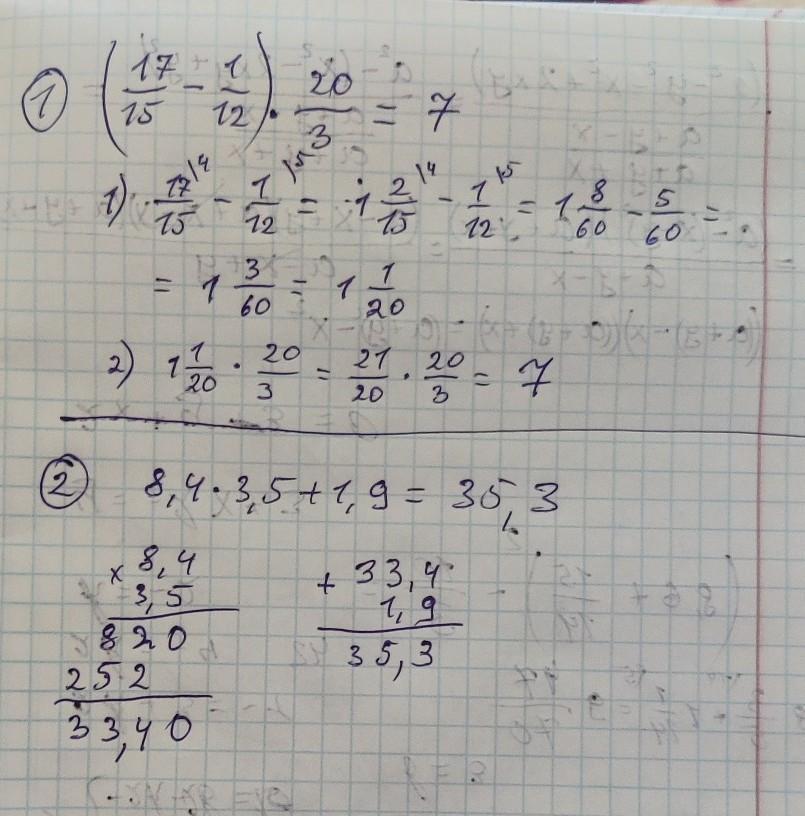 ① (17/15 − 1/12) · 20/3 = 7
1) 17/15 \4 − 1/12 \5 = 1 2/15 \4 − 1/12 \5 = 1 8/60 − 5/60 =
= 1 3/60 = 1 1/20
2) 1 1/20 · 20/3 = 21/20 · 20/3 = 7
② 8,4 · 3,5 + 1,9 = 35,3
× 8,4
3,5
820
252
33,40
+ 33,4
1,9
35,3